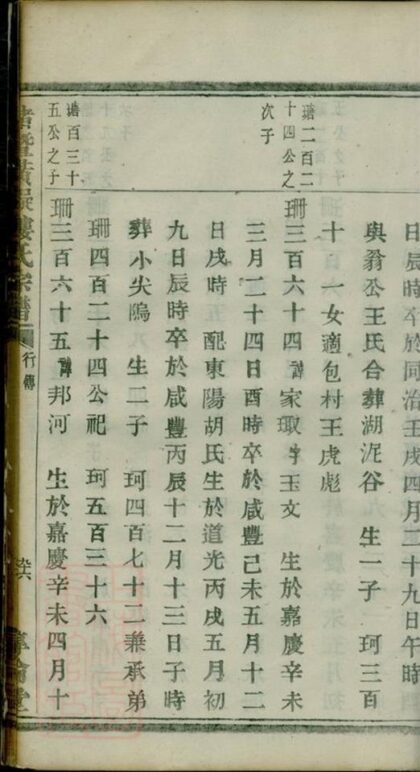 日辰時卒於同治壬戌四月二十九日午時
與翁公王氏合葬湖泥谷 生一子 珂三百
十 一女適包村王虎彪
瑭二百二
十四公之
次子
珊三百六十四 諱家珋 字玉文 生於嘉慶辛未
三月二十四日酉時卒於咸豐己未五月十二
日戌時 配東陽胡氏生於道光丙戌五月初
九日辰時卒於咸豐丙辰十二月十三日子時
葬小尖塢 生二子 珂四百七十二兼承弟
珊四百二十四公祀 珂五百三十六
瑭百三十
五公之子
珊三百六十五 諱邦河 生於嘉慶辛未四月十
暨 樓氏宗譜
行傳